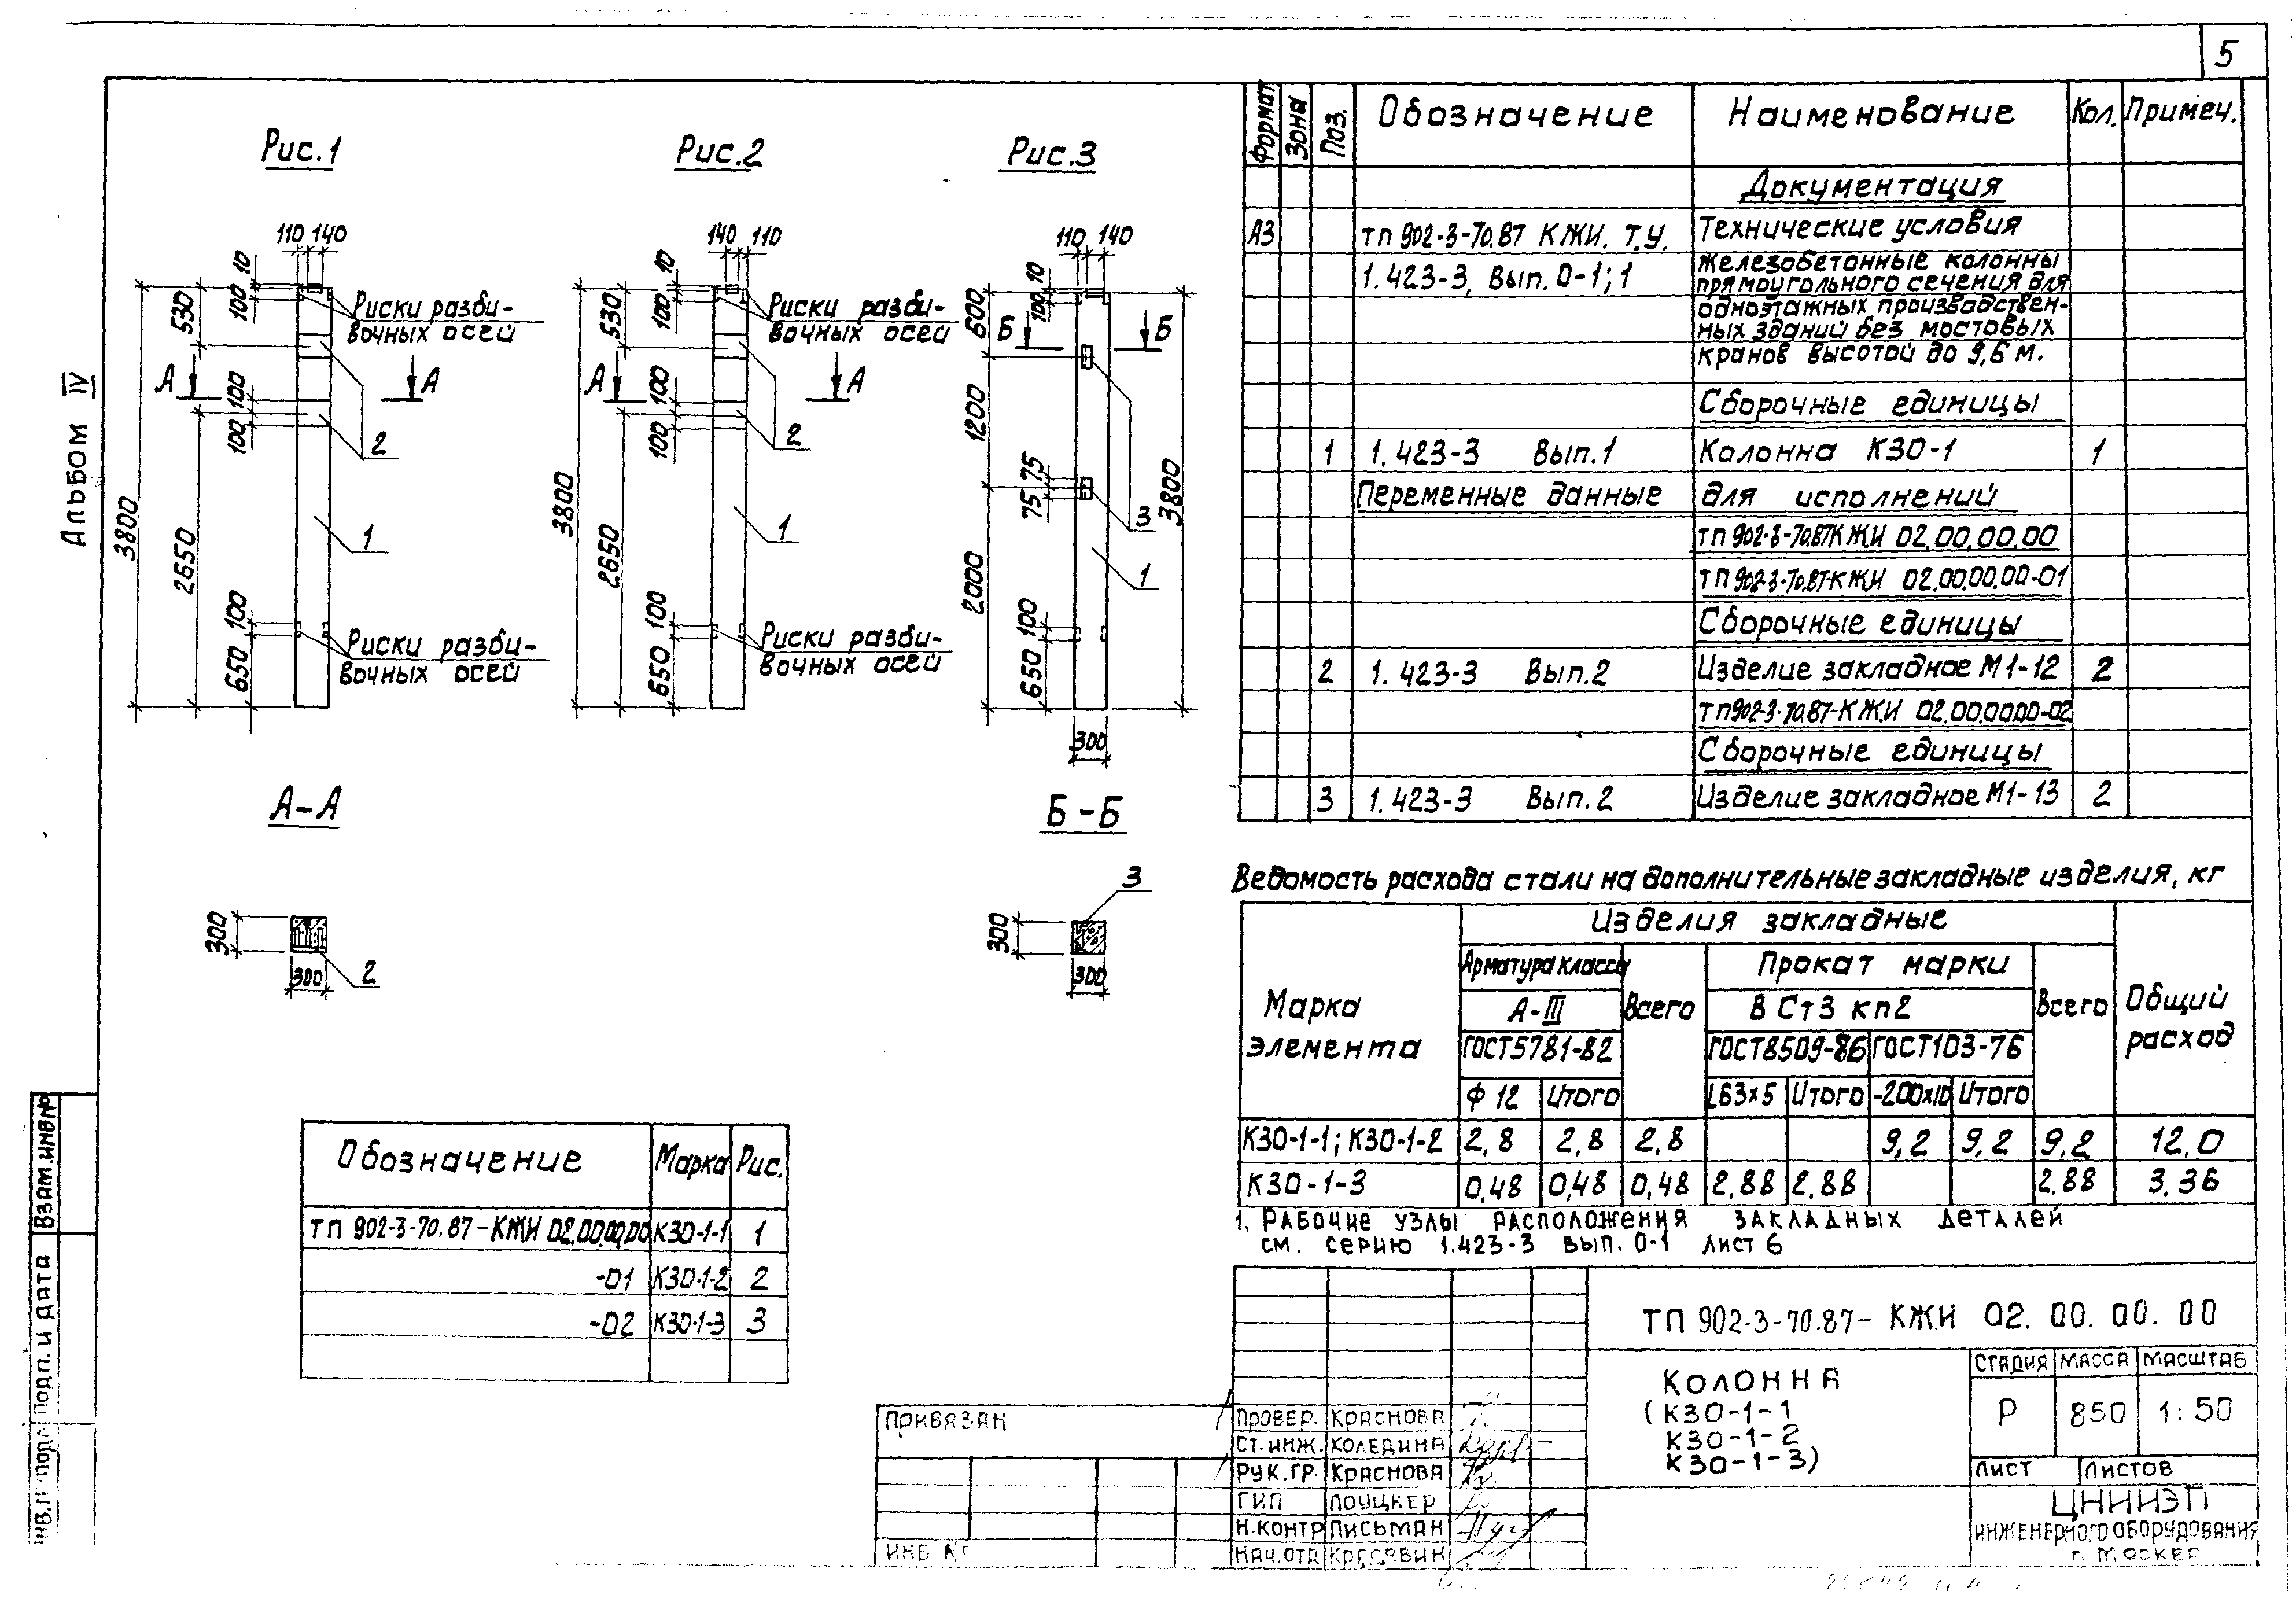 5
Альбом IV
Рис.1
110 140
10
100
530
3800
Риски разби-
вочных осей
А А
100
100
2
2650
1
100
650
Риски разби-
вочных осей
Рис.2
140 110
10
100
530
3800
Риски разби-
вочных осей
А А
100
100
2
2650
1
100
650
Риски разби-
вочных осей
Рис.3
110 140
10
100
600
Б Б
1200
75 75
3
3800
2000
1
100
650
300
А-А
300
300
2
Б-Б
3
300
300
Формат Зона Поз. Обозначение Наименование Кол. Примеч.
Документация
А3 ТП 902-3-70.87 КЖИ. Т.У. Технические условия
1.423-3, Вып. 0-1; 1 Железобетонные колонны
прямоугольного сечения для
одноэтажных производствен-
ных зданий без мостовых
кранов высотой до 9,6 м.
Сборочные единицы
1 1.423-3 Вып.1 Колонна К30-1 1
Переменные данные для исполнений
ТП 902-3-70.87КЖИ 02.00.00.00
ТП 902-3-70.87-КЖИ 02.00.00.00-01
Сборочные единицы
2 1.423-3 Вып.2 Изделие закладное М1-12 2
ТП902-3-70.87-КЖИ 02.00.00.00-02
Сборочные единицы
3 1.423-3 Вып.2 Изделие закладное М1-13 2
Ведомость расхода стали на дополнительные закладные изделия, кг
Марка элемента Изделия закладные Общий расход
Арматура класса Всего Прокат марки Всего
А-III В Ст3 кп2
ГОСТ5781-82 ГОСТ8509-86 ГОСТ103-76
Ф12 Итого L63х5 Итого -200х10 Итого
К30-1-1; К30-1-2 2,8 2,8 2,8 9,2 9,2 9,2 12,0
К30-1-3 0,48 0,48 0,48 2,88 2,88 2,88 3,36
1. Рабочие узлы расположения закладных деталей
см. серию 1.423-3 вып. 0-1 лист 6
Обозначение Марка Рис.
ТП 902-3-70.87-КЖИ 02.00.00.00 К30-1-1 1
-01 К30-1-2 2
-02 К30-1-3 3
Взам.инв№
Подп. и дата
Инв.№ подл
Привязан
Инв. №
Провер. Краснова
Ст.инж. Коледина
Рук.гр. Краснова
ГИП Лоуцкер
Н.контр Письман
Нач.отд Красавин
ТП 902-3-70.87- КЖИ 02. 00. 00. 00
Колонна
(К30-1-1
К30-1-2
К30-1-3)
Стадия Масса Масштаб
Р 850 1:50
Лист Листов
ЦНИИЭП
инженерного оборудования
г. Москва